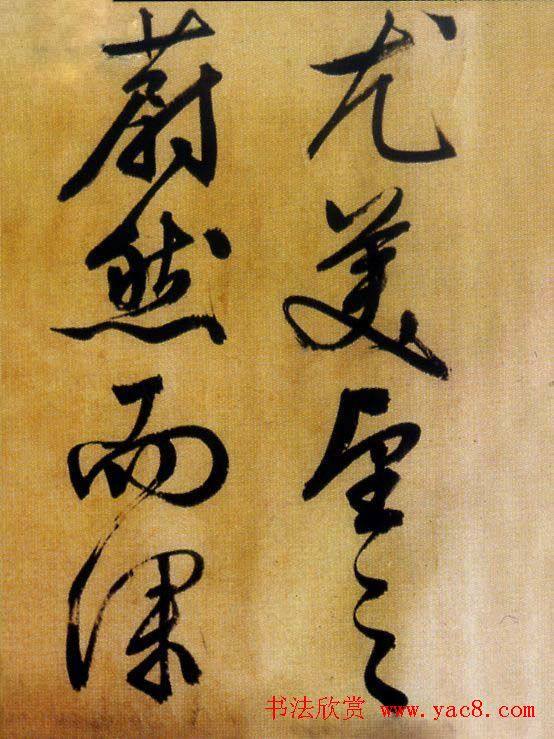 尤美望之
蔚然而深
书法欣赏 www.yac8.com